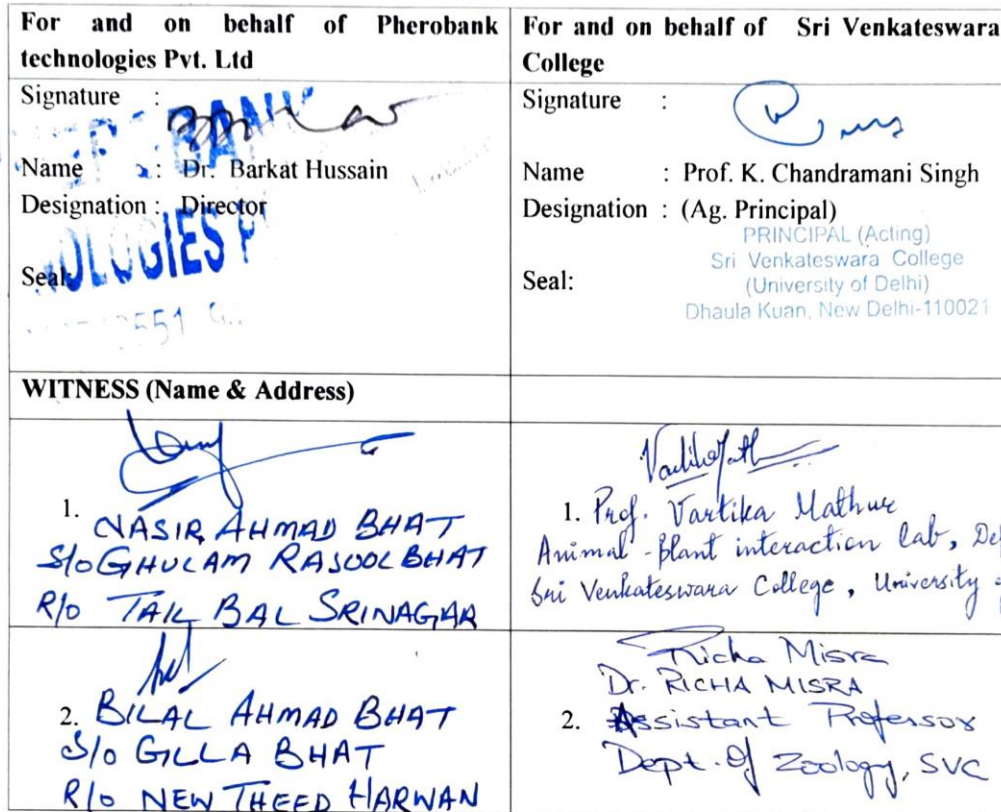 For and on behalf of Pherobank
technologies Pvt. Ltd
Signature :
Name : Dr. Barkat Hussain
Designation : Director
Seal:
OLOGIES P
For and on behalf of Sri Venkateswara
College
Signature :
Name : Prof. K. Chandramani Singh
Designation : (Ag. Principal)
PRINCIPAL (Acting)
Sri Venkateswara College
(University of Delhi)
Dhaula Kuan, New Delhi-110021
Seal:
WITNESS (Name & Address)
1.
NASIR AHMAD BHAT
S/o GHULAM RASOOL BHAT
R/o TAIL BAL SRINAGAR
1. Prof. Vartika Mathur
Animal-plant interaction lab,
Sri Venkateswara College, University
2. BILAL AHMAD BHAT
S/o GILLA BHAT
R/o NEW THEED HARWAN
Richa Misra
Dr. RICHA MISRA
2. Assistant Professor
Dept. Of Zoology, SVC